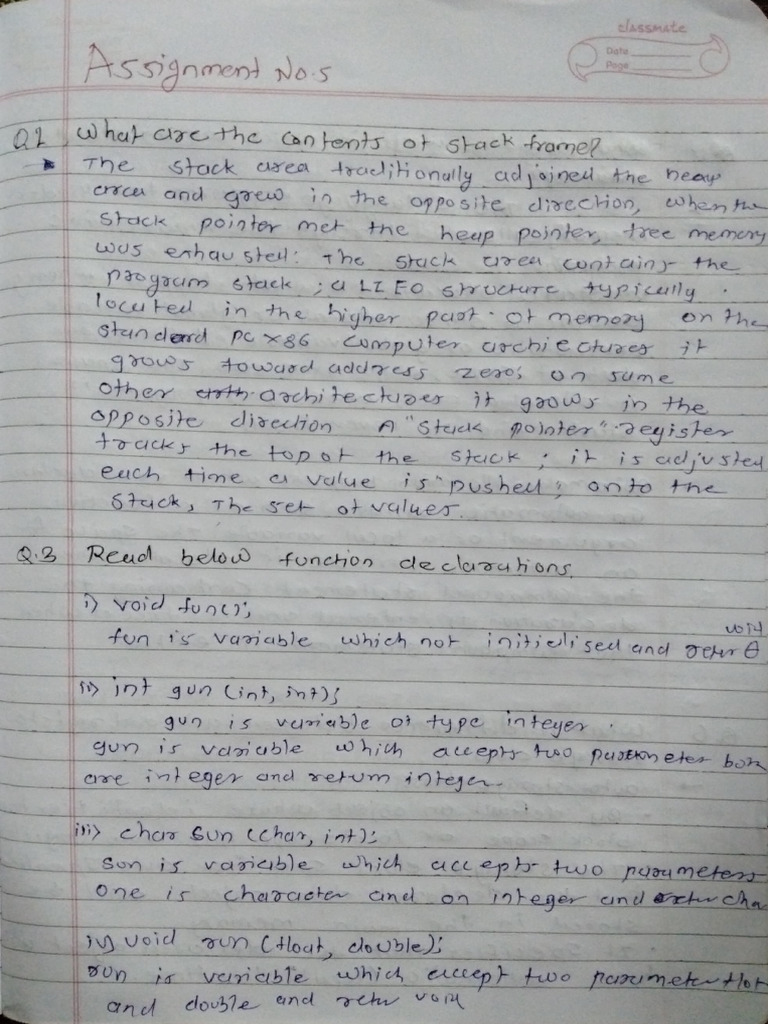 classmate
Date
Page
Assignment No.5
Q1 What are the contents of stack frame?
The stack area traditionally adjoined the heap
area and grew in the opposite direction, when the
stack pointer met the heap pointer, free memory
was exhausted: The stack area contains the
program stack ; a LIFO structure typically.
located in the higher part of memory on the
standard PC X86 computer archiectures it
grows toward address zero; on same
other architectures it grows in the
opposite direction A "stack pointer" register
tracks the top of the stack ; it is adjusted
each time a value is "pushed" onto the
stack, The set of values.
Q.3 Read below function declarations.
i) void fun();
void
fun is variable which not initielised and retur
ii) int gun (int, int);
gun is variable of type integer.
gun is variable which accepts two parameter both
are integer and return integer.
iii) char sun (char, int);
sun is variable which accepts two parameters
one is character and on integer and retur cha
iv) void run (float, double);
run is variable which accept two parameter flot
and double and retur void